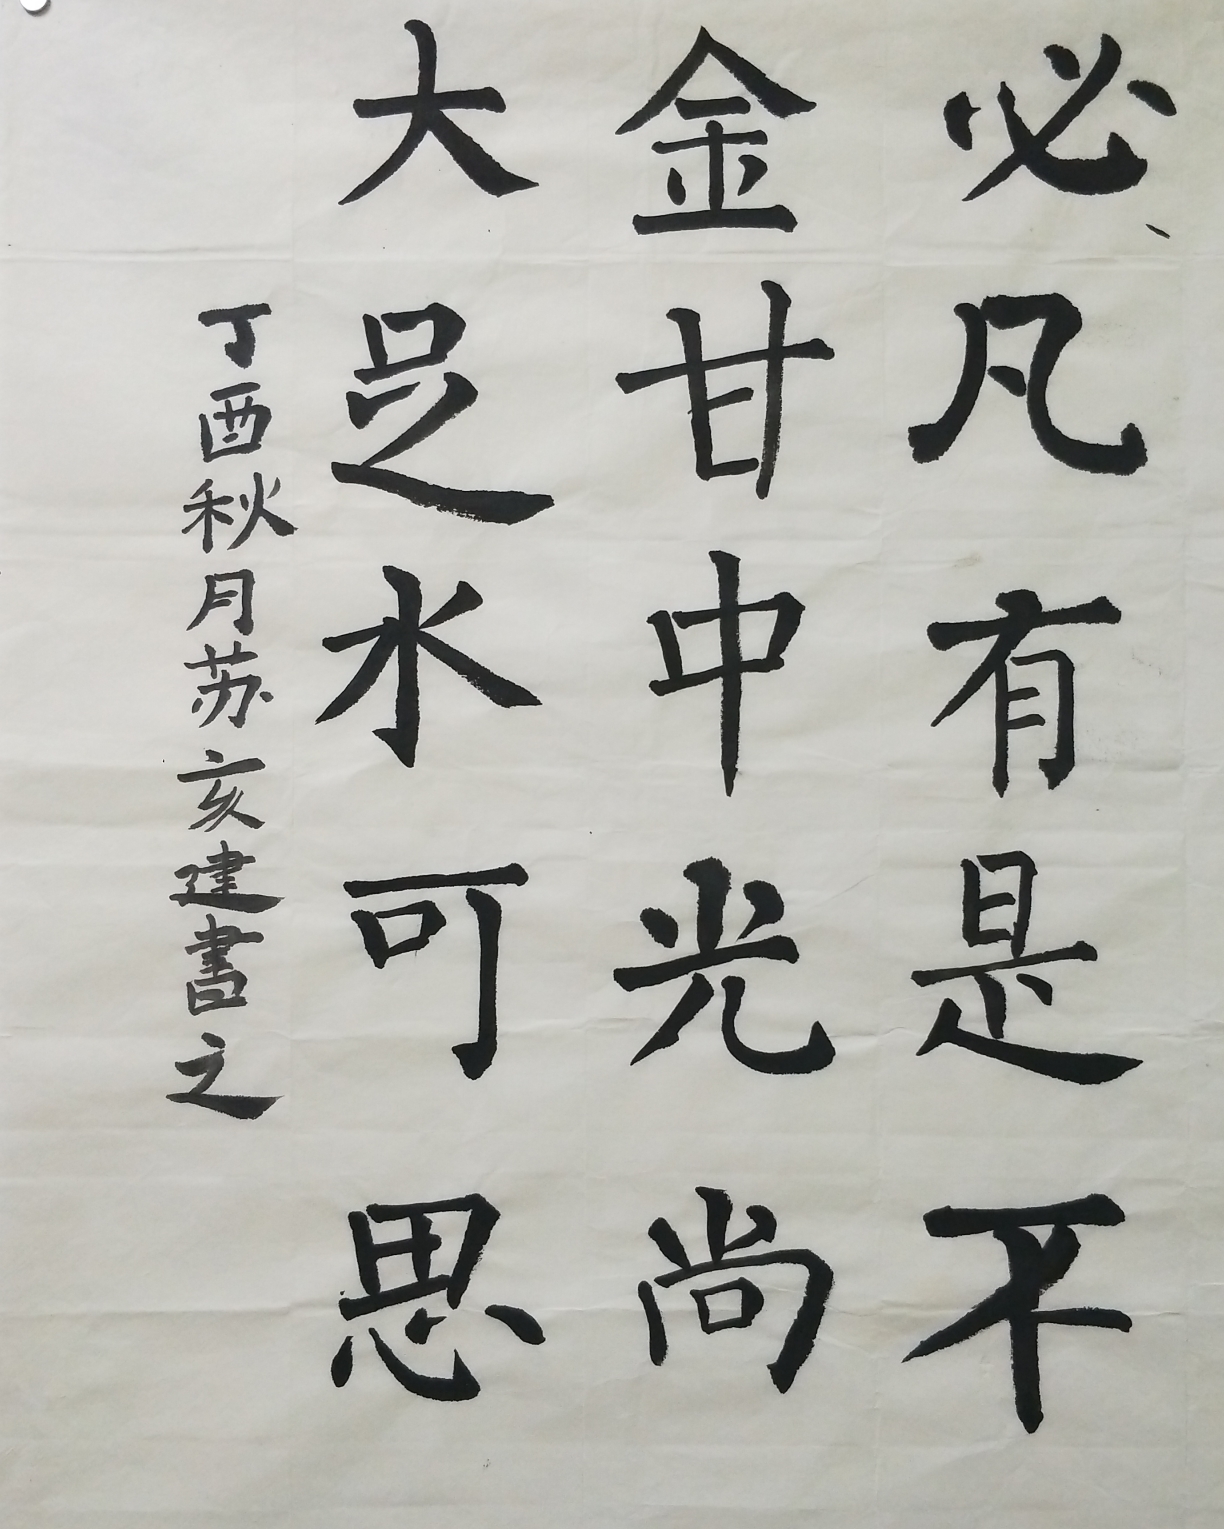 必凡有是不
金甘中光尚
大足水可思
丁酉秋月苏亥建書之